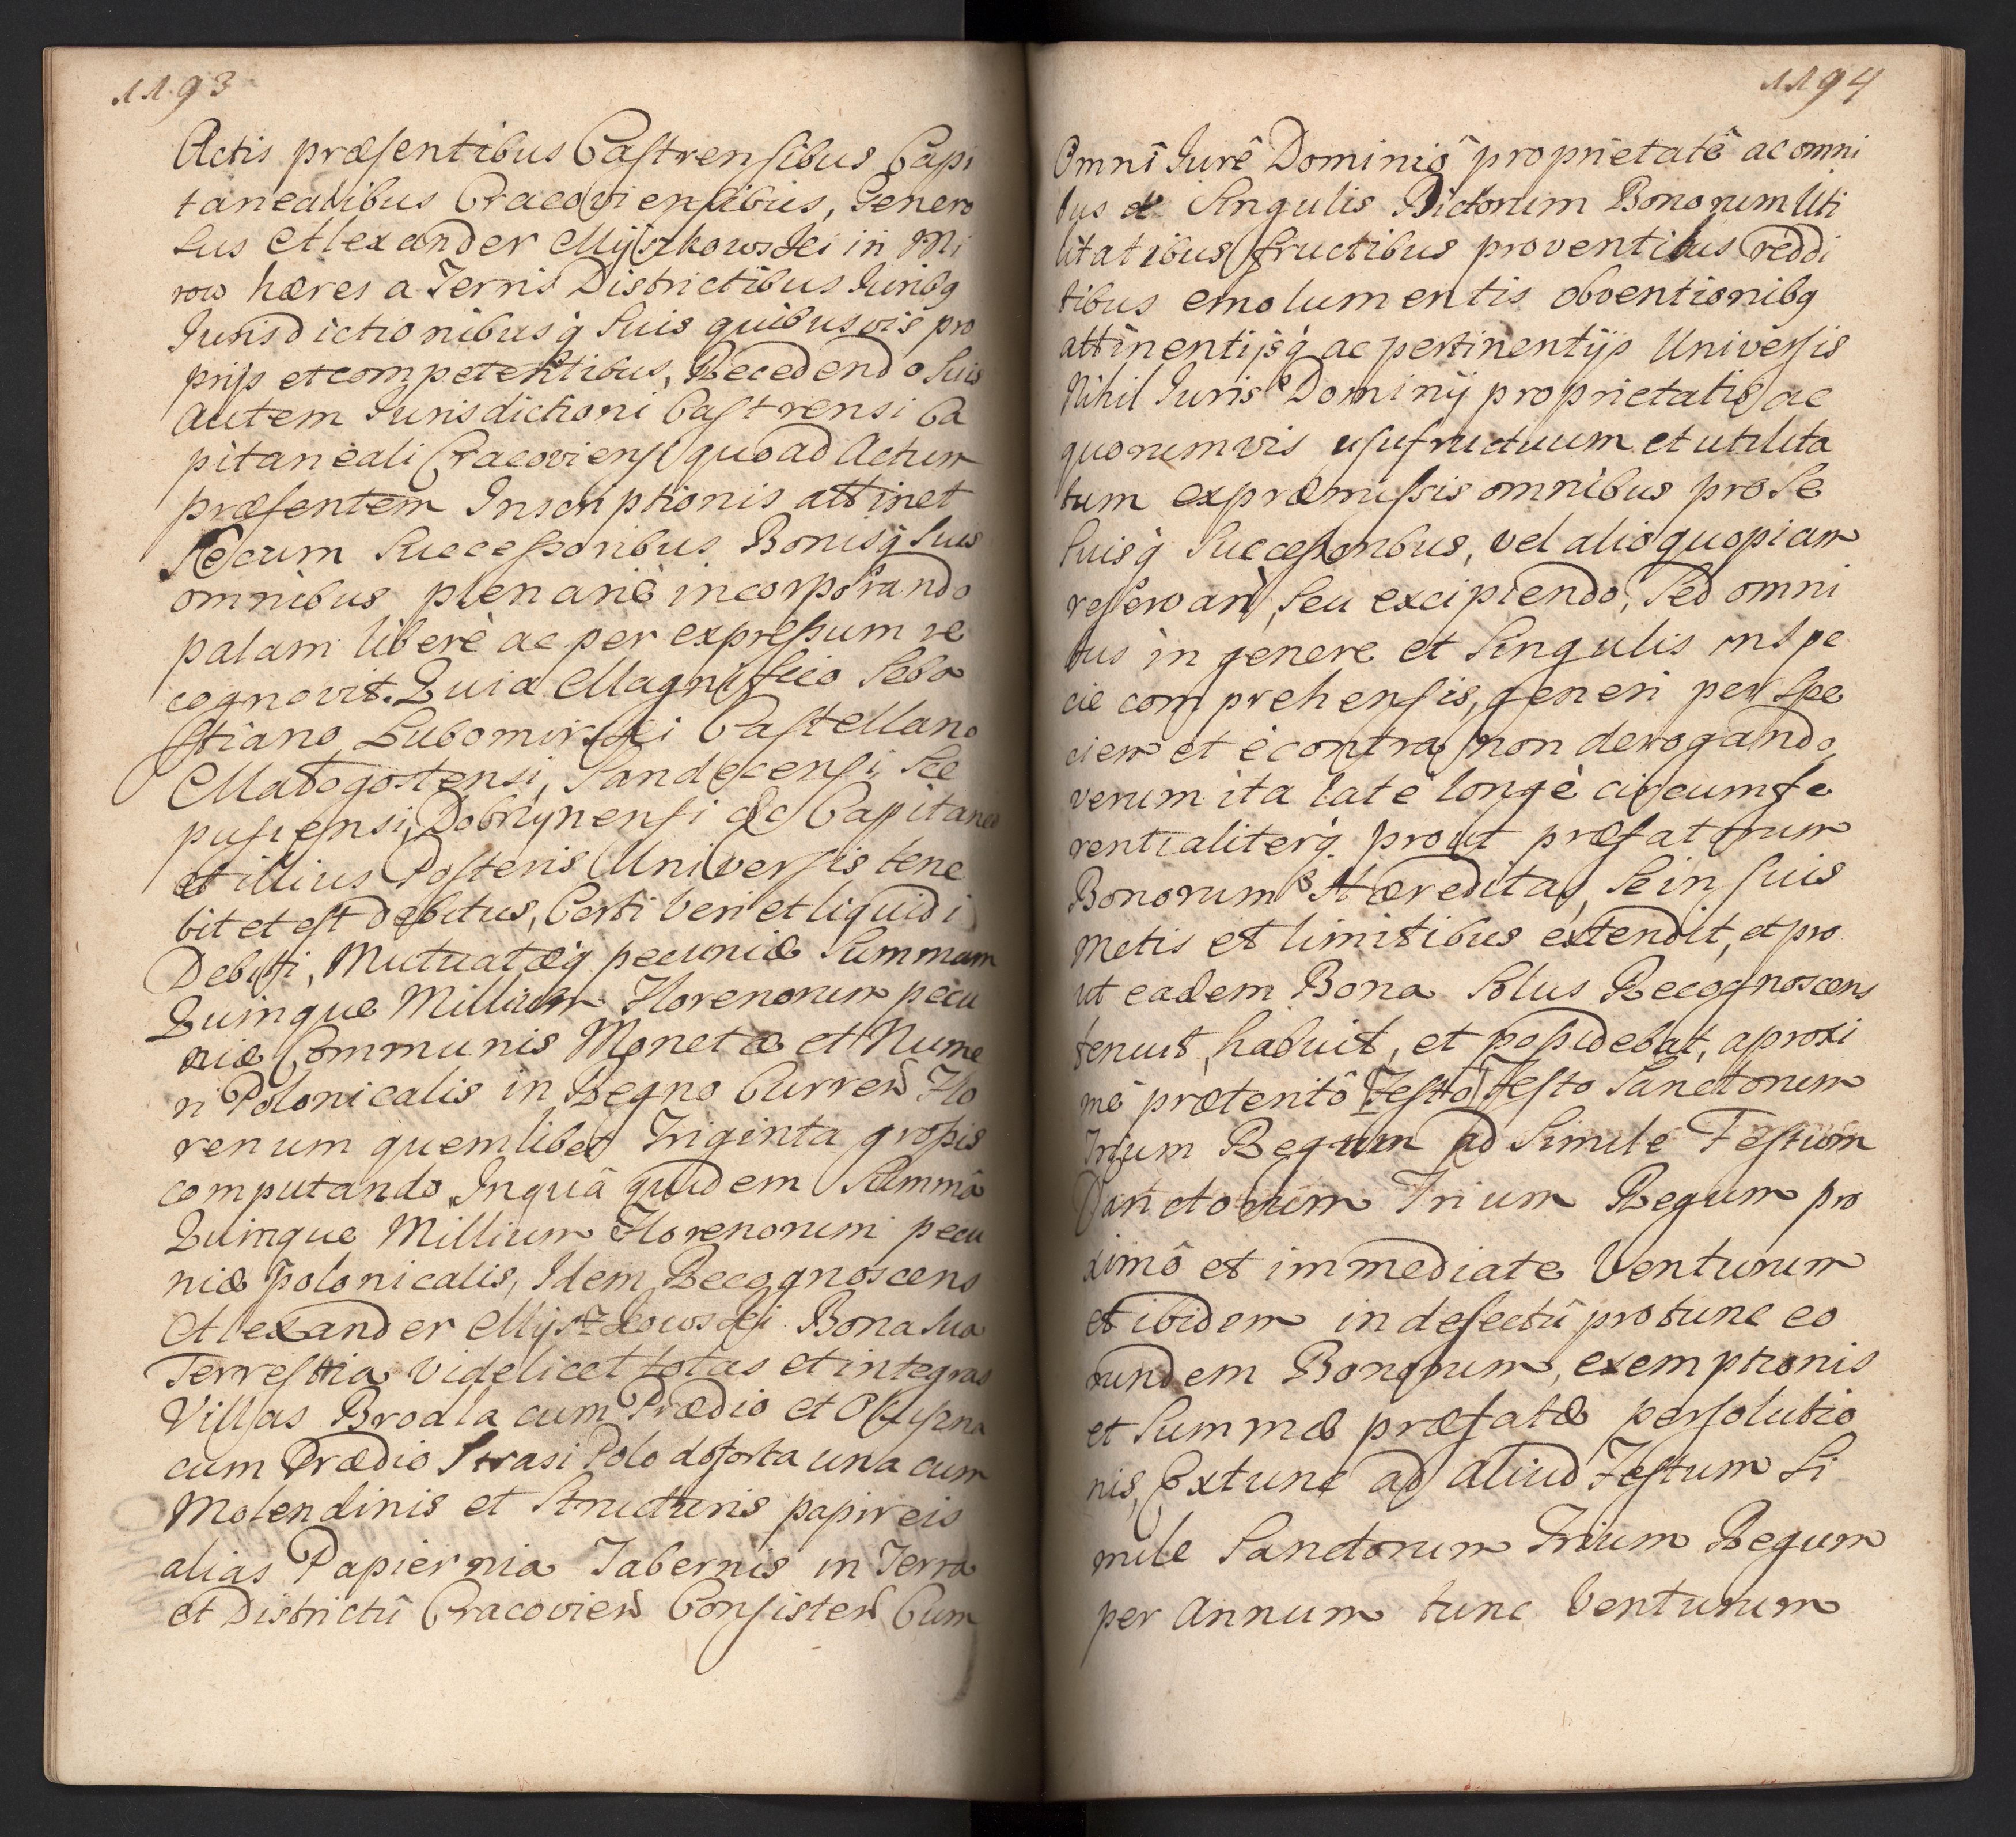 1193
Actis præsentibus Castrensibus Capi
tanealibus Cracoviensibus, Genero
sus Alexander Myszkowski in Mi
row hæres a Terris Districtibus Juribq
Jurisdictionibusq́ Suis quibusvis pro
prijs et competentibus, Recedendo Suis
autem Jurisdictioni Castrensi Ca
pitaneali Cracoviensi quoad Actum
præsentem Inscriptionis attinet
Secum Successoribus Bonisq́ Suis
omnibus plenariè incorporando
palam liberè ac per expressum re
cognovit. Quia Magnifico Seba
stiano Lubomirski Castellano
Matogostensi, Sandecensi, Sce
pusiensi, Dobczynensi &c Capitaneo
et illius Posteris Universis tene
bit et est debitus, Certi Veri et liquidi
Debiti, Mutuatæq́ pecuniæ Summam
Quinque Millium Florenorum pecu
niæ Communis Monetæ et Nume
ri Polonicalis in Regno Curren̄ Flo
renum quemlibet Triginta grossis
computando, Inquâ quidem Summâ
Quinque Millium Florenorum pecu
niæ Polonicalis, Idem Recognoscens
Alexander Myszkowski Bona Sua
Terrestria videlicet totas et integras
Villas Brodla cum Prædio et
cum Prædio una cum
Molendinis et Structuris papireis
alias Papiernia Tabernis in Terra
et Districtû Cracovien̄ Consisten̄ Cum
1194
Omnî Jurê Dominiô proprietatê ac omni
bus & Singulis Dictorum Bonorum Uti
litatibus fructibus proventibus reddi
tibus emolumentis obventionibq
attinentijsq́ ac pertinentijs Universis
Nihil Juris Dominij proprietatis ac
quorumvis usufructuum et utilita
tum expræmissis omnibus pro Se
Suisq́ Successoribus, vel alio quopiam
reservan̄, Seu excipiendo, Sed omni
bus in genere et Singulis inspe
cie comprehensis, generi per Spe
ciem et è contra non derogando,
verum ita latè longè circumfe
rentialiterq́ prout præfatorum
Bonorum Hæreditas, Se in suis
Metis et limitibus extendit, et pro
ut eadem Bona Solus Recognoscens
tenuit, habuit, et possidebat, a proxi
mè præteritô Festo Festo Sanctorum
Trium Regum ad Simile Festum
Sanctorum Trium Regum pro
ximô et immediate Venturum
et ibidem in defectû pro tunc eo
rundem Bonorum, exemptionis
et Summæ præfatæ persolutio
nis, Extunc ad aliud Festum Si
mile Sanctorum Trium Regum
per Annum tunc Venturum